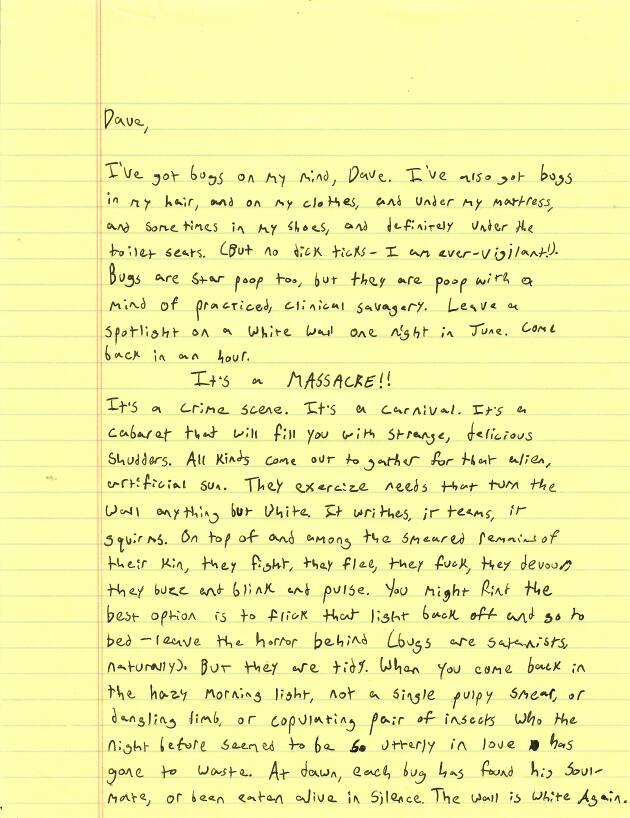 Dave,
I've got bugs on my mind, Dave. I've also got bugs
in my hair, and on my clothes, and under my mattress,
and sometimes in my shoes, and definitely under the
toilet seats. (But no dick ticks - I am ever-vigilant!).
Bugs are star poop too, but they are poop with a
mind of practiced, clinical savagery. Leave a
spotlight on a white wall one night in June. Come
back in an hour.
It's a MASSACRE!!
It's a crime scene. It's a carnival. It's a
cabaret that will fill you with strange, delicious
shudders. All kinds come out to gather for that alien,
artificial sun. They exercize needs that turn the
wall anything but white. It writhes, it teams, it
squirms. On top of and among the smeared remains of
their kin, they fight, they flee, they fuck, they devour
they buzz and blink and pulse. You might find the
best option is to flick that light back off and go to
bed - leave the horror behind (bugs are satanists,
naturally). But they are tidy. When you come back in
the hazy morning light, not a single pulpy smear, or
dangling limb, or copulating pair of insects who the
night before seemed to be so utterly in love has
gone to waste. At dawn, each bug has found his soul-
mate, or been eaten alive in silence. The wall is white again.